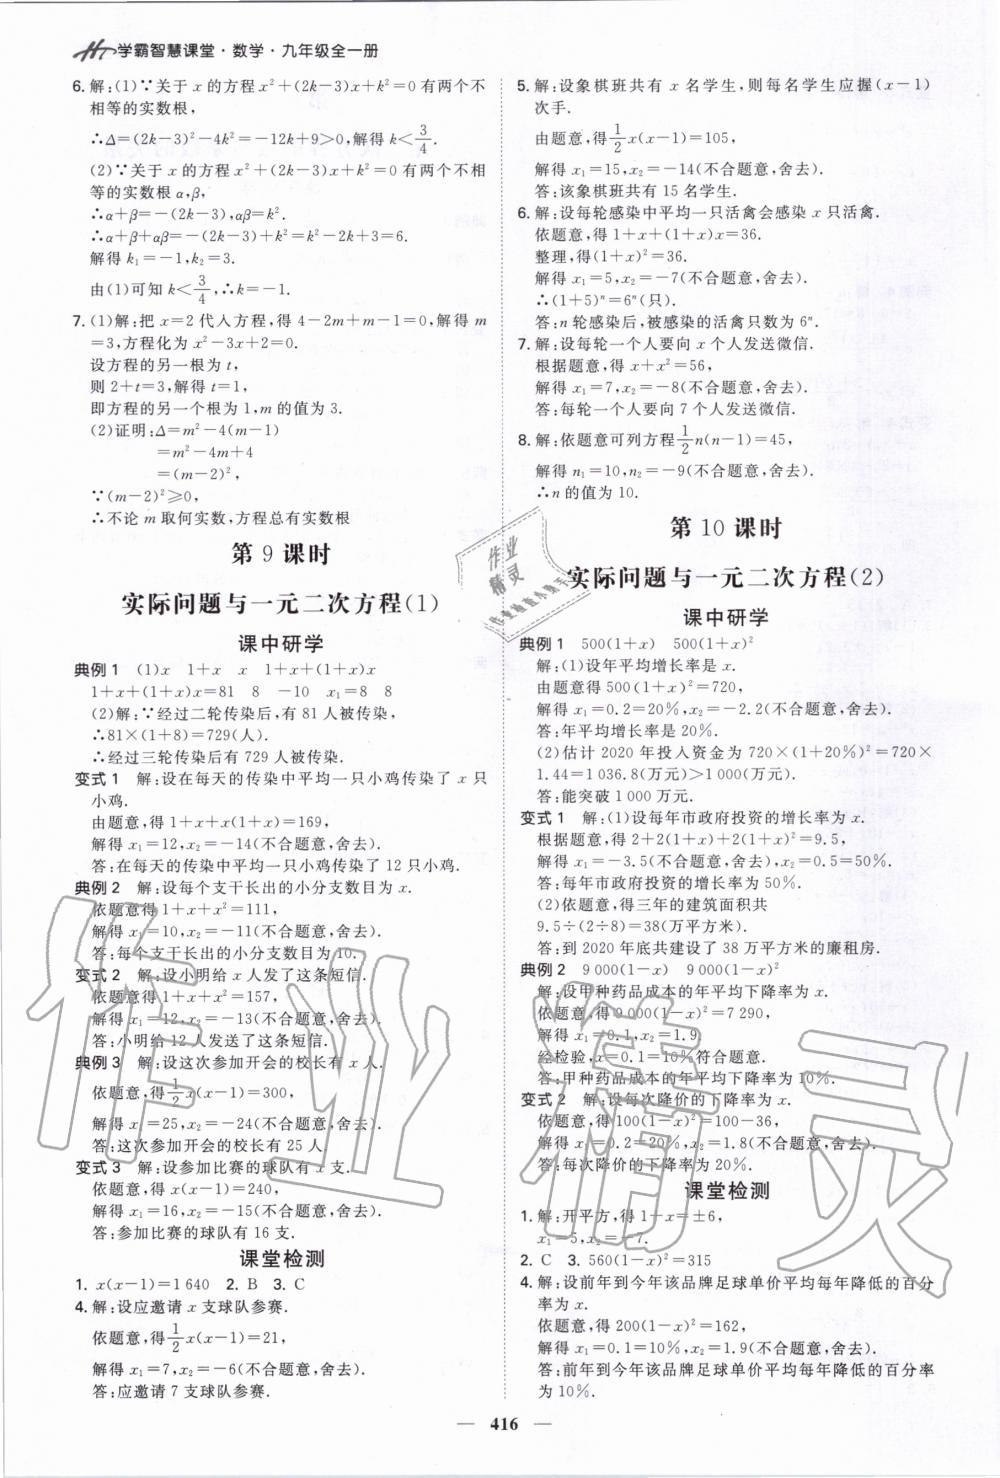 学霸智慧课堂·数学·九年级全一册
6. 解:(1)∵关于 x 的方程 x²+(2k-3)x+k²=0 有两个不
相等的实数根,
∴Δ=(2k-3)²-4k²=-12k+9>0,解得 k<3/4.
(2)∵关于 x 的方程 x²+(2k-3)x+k²=0 有两个不相
等的实数根 α,β,
∴α+β=-(2k-3),αβ=k².
∴α+β+αβ=-(2k-3)+k²=k²-2k+3=6.
解得 k₁=-1,k₂=3.
由(1)可知 k<3/4,∴k=-1.
7. (1)解:把 x=2 代入方程,得 4-2m+m-1=0,解得 m
=3,方程化为 x²-3x+2=0.
设方程的另一根为 t,
则 2+t=3,解得 t=1,
即方程的另一个根为 1,m 的值为 3.
(2)证明:Δ=m²-4(m-1)
=m²-4m+4
=(m-2)²,
∵(m-2)²≥0,
∴不论 m 取何实数,方程总有实数根
第 9 课时
实际问题与一元二次方程(1)
课中研学
典例 1 (1)x 1+x x 1+x+(1+x)x
1+x+(1+x)x=81 8 -10 x₁=8 8
(2)解:∵经过二轮传染后,有 81 人被传染,
∴81×(1+8)=729(人).
∴经过三轮传染后有 729 人被传染.
变式 1 解:设在每天的传染中平均一只小鸡传染了 x 只
小鸡.
由题意,得 1+x+x(1+x)=169,
解得 x₁=12,x₂=-14(不合题意,舍去).
答:在每天的传染中平均一只小鸡传染了 12 只小鸡.
典例 2 解:设每个支干长出的小分支数目为 x.
依题意得 1+x+x²=111,
解得 x₁=10,x₂=-11(不合题意,舍去).
答:每个支干长出的小分支数目为 10.
变式 2 解:设小明给 x 人发了这条短信.
依题意得 1+x+x²=157,
解得 x₁=12,x₂=-13(不合题意,舍去).
答:小明给 12 人发送了这条短信.
典例 3 解:设这次参加开会的校长有 x 人.
依题意,得1/2x(x-1)=300,
解得 x₁=25,x₂=-24(不合题意,舍去).
答:这次参加开会的校长有 25 人.
变式 3 解:设参加比赛的球队有 x 支.
依题意,得 x(x-1)=240,
解得 x₁=16,x₂=-15(不合题意,舍去).
答:参加比赛的球队有 16 支.
课堂检测
1. x(x-1)=1 640 2. B 3. C
4. 解:设应邀请 x 支球队参赛.
依题意,得1/2x(x-1)=21,
解得 x₁=7,x₂=-6(不合题意,舍去).
答:应邀请 7 支球队参赛.
5. 解:设象棋班共有 x 名学生,则每名学生应握(x-1)
次手.
由题意,得1/2x(x-1)=105,
解得 x₁=15,x₂=-14(不合题意,舍去).
答:该象棋班共有 15 名学生.
6. 解:设每轮感染中平均一只活禽会感染 x 只活禽.
依题意,得 1+x+(1+x)x=36.
整理,得(1+x)²=36.
解得 x₁=5,x₂=-7(不合题意,舍去).
∴(1+5)ⁿ=6ⁿ(只).
答:n 轮感染后,被感染的活禽只数为 6ⁿ.
7. 解:设每轮一个人要向 x 个人发送微信.
根据题意,得 x+x²=56,
解得 x₁=7,x₂=-8(不合题意,舍去).
答:每轮一个人要向 7 个人发送微信.
8. 解:依题意可列方程1/2n(n-1)=45,
解得 n₁=10,n₂=-9(不合题意,舍去).
∴n 的值为 10.
第 10 课时
实际问题与一元二次方程(2)
课中研学
典例 1 500(1+x) 500(1+x)²
解:(1)设年平均增长率是 x.
由题意得 500(1+x)²=720,
解得 x₁=0.2=20%,x₂=-2.2(不合题意,舍去).
答:年平均增长率是 20%.
(2)估计 2020 年投入资金为 720×(1+20%)²=720×
1.44=1 036.8(万元)>1 000(万元).
答:能突破 1 000 万元.
变式 1 解:(1)设每年市政府投资的增长率为 x.
根据题意,得 2+2(1+x)+2(1+x)²=9.5,
解得 x₁=-3.5(不合题意,舍去),x₂=0.5=50%.
答:每年市政府投资的增长率为 50%.
(2)依题意,得三年的建筑面积共
9.5÷(2÷8)=38(万平方米).
答:到 2020 年底共建设了 38 万平方米的廉租房.
典例 2 9 000(1-x) 9 000(1-x)²
解:设甲种药品成本的年平均下降率为 x.
依题意,得 9 000(1-x)²=7 290,
解得 x₁=0.1,x₂=1.9.
经检验,x=0.1=10%符合题意.
答:甲种药品成本的年平均下降率为 10%.
变式 2 解:设每次降价的下降率为 x.
依题意,得 100(1-x)²=100-36,
解得 x₁=0.2=20%,x₂=1.8(不合题意,舍去).
答:每次降价的下降率为 20%.
课堂检测
1. 解:开平方,得 1-x=±6,
x₁=-5,x₂=7.
2. C 3. 560(1-x)²=315
4. 解:设前年到今年该品牌足球单价平均每年降低的百分
率为 x.
依题意,得 200(1-x)²=162,
解得 x₁=0.1=10%,x₂=1.9(不合题意,舍去).
答:前年到今年该品牌足球单价平均每年降低的百分率
为 10%.
416
作业精灵
作业精灵